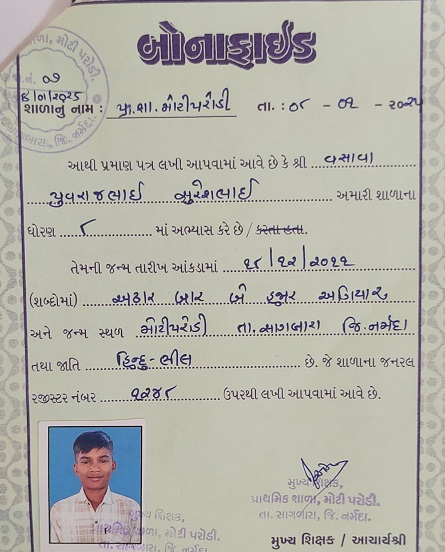 બોનાફાઇડ
શાળા, મોટી પરોડી.
જા.નં. ૦૭
શાળાનું નામ : પ્રા.શા. મોટીપરોડી તા. : ૦૮ - ૦૧ - ૨૦૨૫
આથી પ્રમાણ પત્ર લખી આપવામાં આવે છે કે શ્રી વસાવા
યુવરાજભાઈ સુરેશભાઈ અમારી શાળાના
ધોરણ ૮ માં અભ્યાસ કરે છે / કરતા હતા.
તેમની જન્મ તારીખ આંકડામાં ૧૮/૧૨/૨૦૧૧
(શબ્દોમાં) અઢાર બાર બે હજાર અગિયાર
અને જન્મ સ્થળ મોટીપરોડી તા.સાગબારા જિ.નર્મદા
તથા જાતિ હિન્દુ-ભીલ છે. જે શાળાના જનરલ
રજીસ્ટર નંબર ૧૨૪૮ ઉપરથી લખી આપવામાં આવે છે.
મુખ્ય શિક્ષક,
પ્રાથમિક શાળા, મોટી પરોડી.
તા. સાગબારા, જિ. નર્મદા.
મુખ્ય શિક્ષક,
પ્રાથમિક શાળા, મોટી પરોડી.
તા. સાગબારા, જિ. નર્મદા
મુખ્ય શિક્ષક / આચાર્યશ્રી